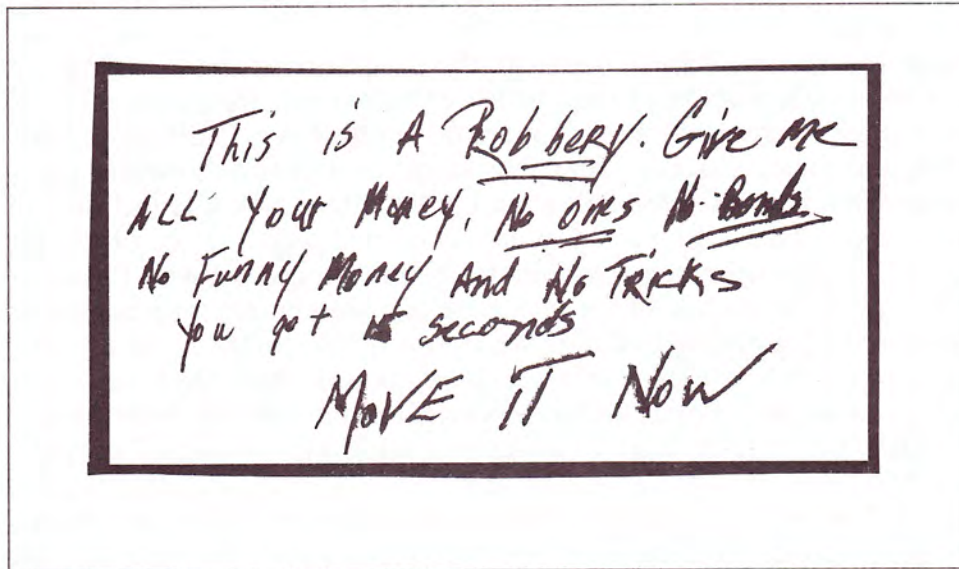 This is A Robbery. Give me
ALL Your Money, No ones No Bombs
No Funny Money And No Tricks
You got seconds
MOVE IT NOW